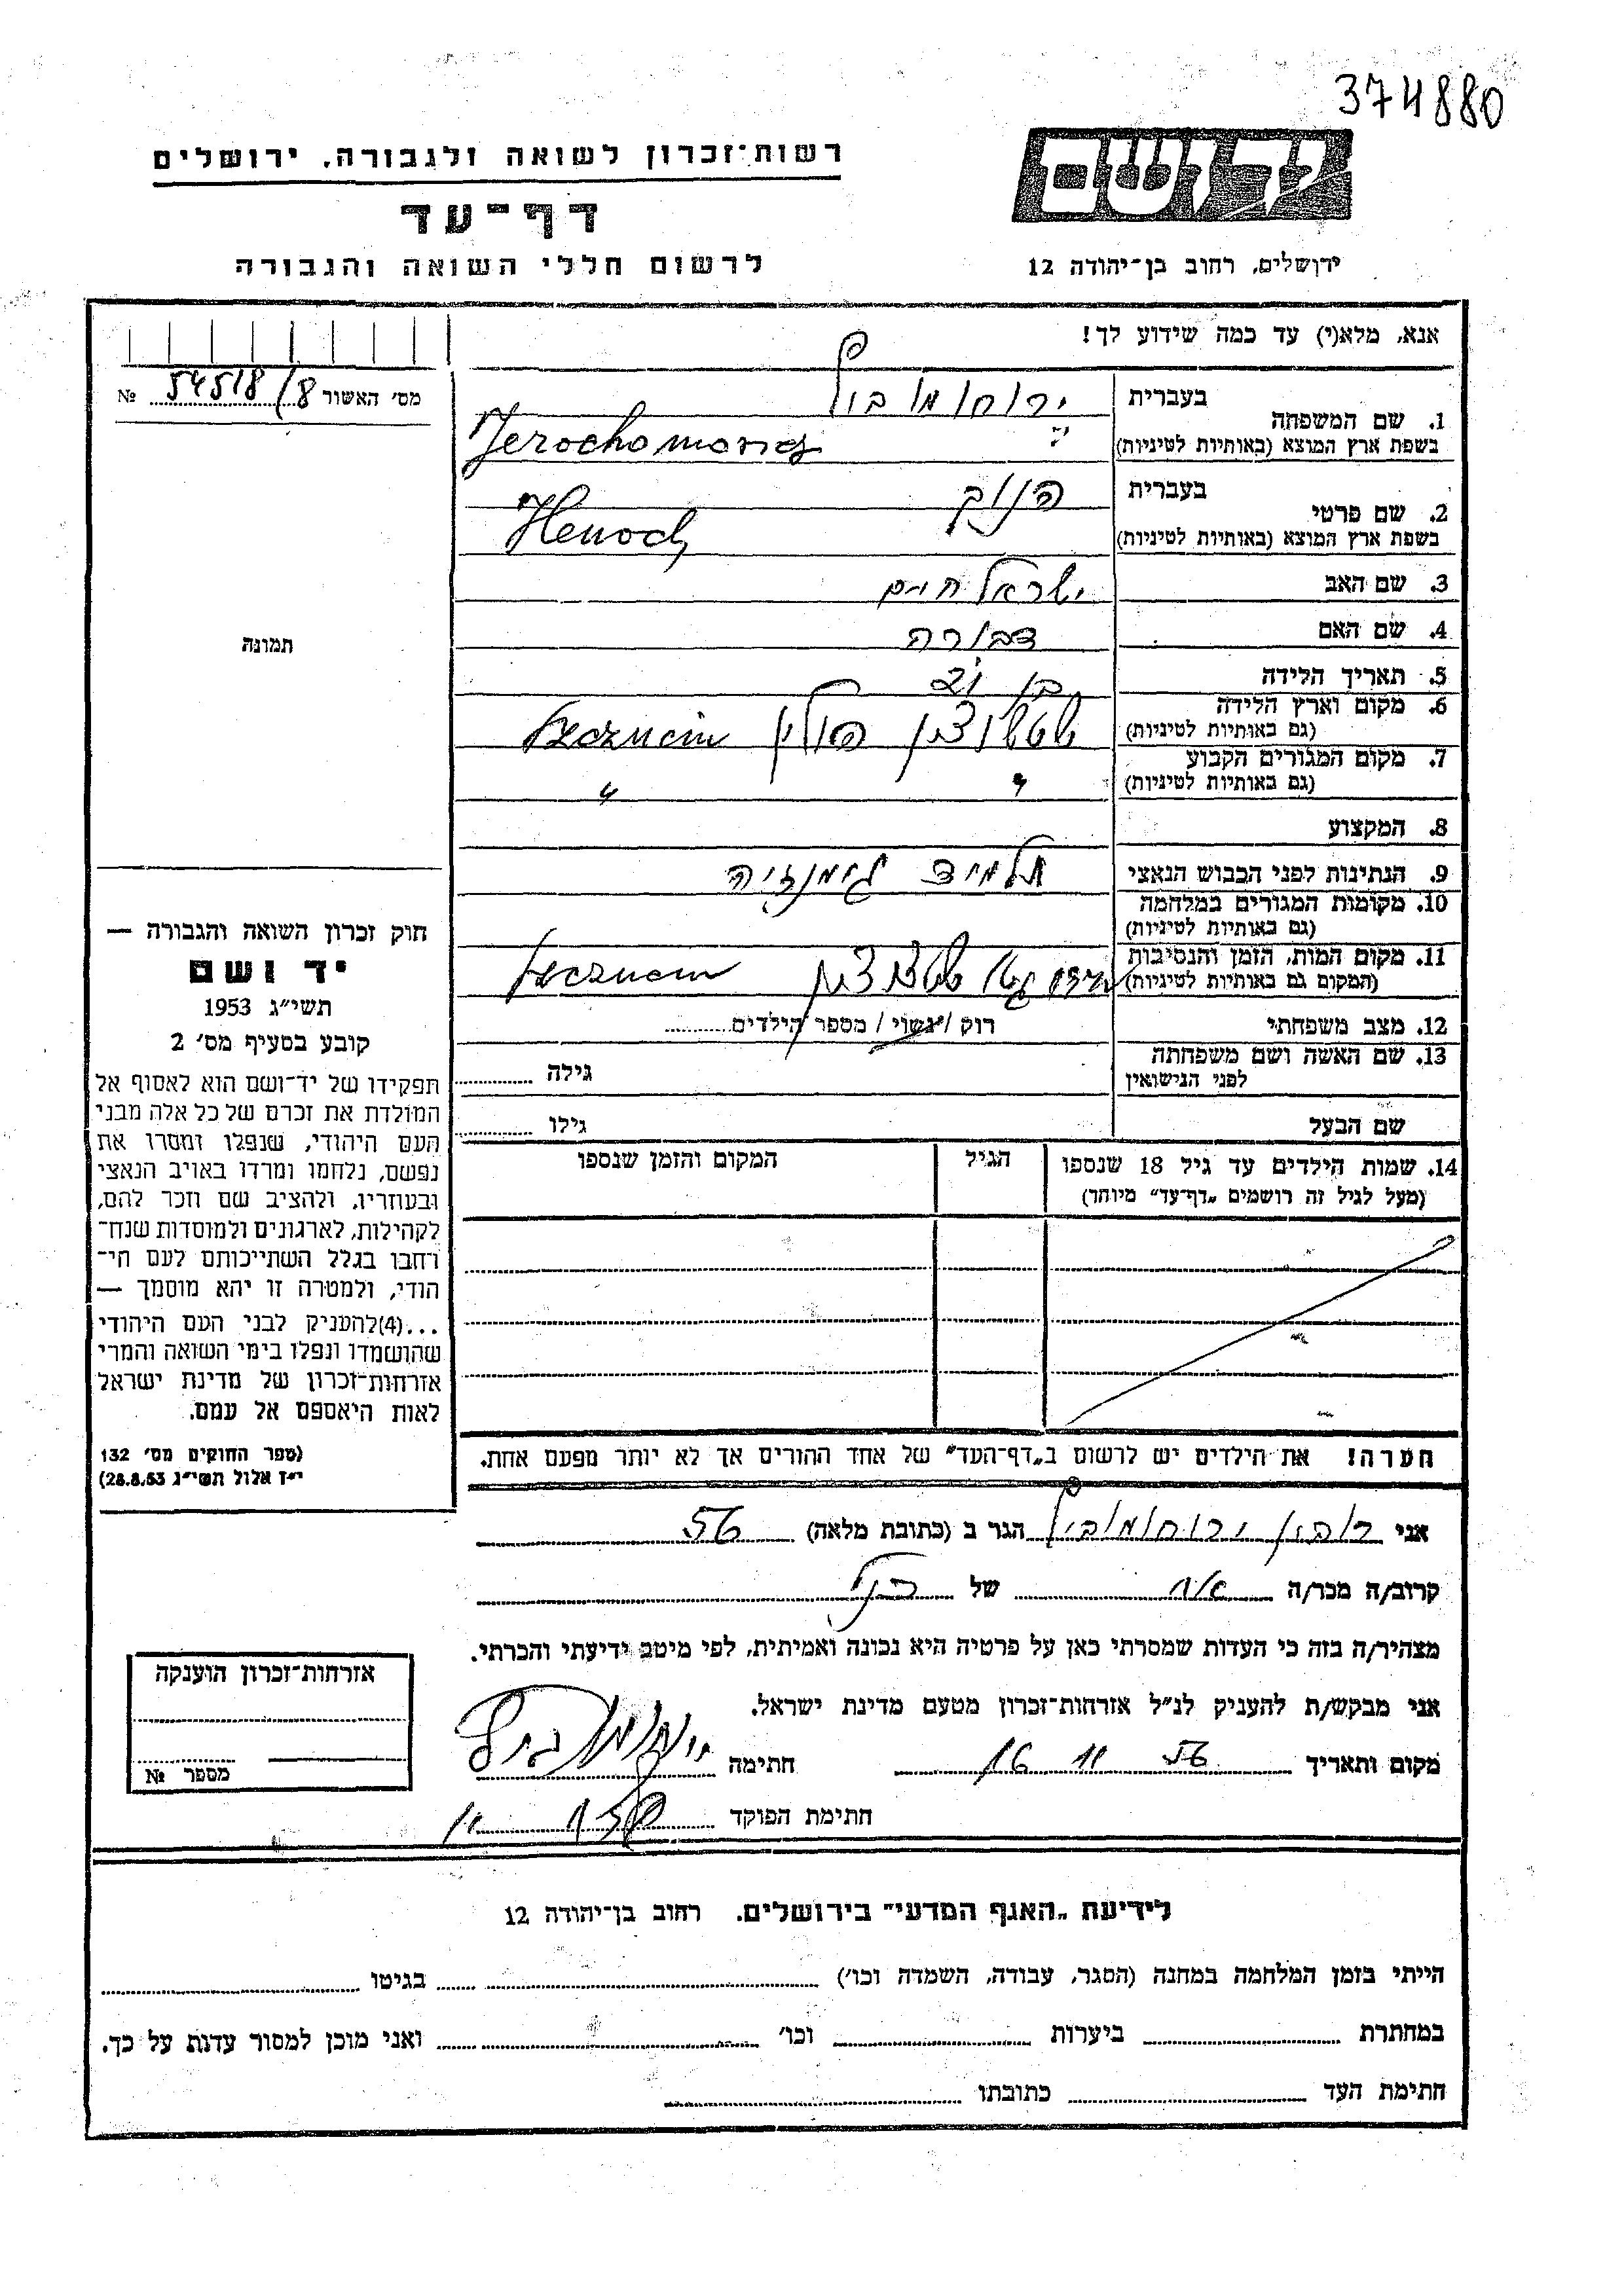 374880
רשות־זכרון לשואה ולגבורה. ירושלים
דף־עד
לרשום חללי השואה והגבורה
יד ושם
ירושלים, רחוב בן־יהודה 12
אנא, מלא(י) עד כמה שידוע לך!
מס׳ האשור 54518/8 №
1. שם המשפחה בעברית ירוחמוביץ
בשפת ארץ המוצא (באותיות לטיניות) Jerochomovicz
2. שם פרטי בעברית הנוך
בשפת ארץ המוצא (באותיות לטיניות) Henoch
3. שם האב ישראל חיים
4. שם האם דבורה
5. תאריך הלידה בן
6. מקום וארץ הלידה פולין
(גם באותיות לטיניות)
7. מקום המגורים הקבוע "
(גם באותיות לטיניות) "
8. המקצוע
9. הנתינות לפני הכבוש הנאצי תלמיד גימנזיה
10. מקומות המגורים במלחמה
(גם באותיות לטיניות)
11. מקום המות, הזמן והנסיבות
(המקום גם באותיות לטיניות)
12. מצב משפחתי רוק / נשוי / מספר הילדים
13. שם האשה ושם משפחתה גילה
לפני הנישואין
שם הבעל גילו
14. שמות הילדים עד גיל 18 שנספו הגיל המקום והזמן שנספו
(מעל לגיל זה רושמים „דף־עד" מיוחד)
הערה! את הילדים יש לרשום ב„דף־העד" של אחד ההורים אך לא יותר מפעם אחת.
תמונה
חוק זכרון השואה והגבורה —
יד ושם
תשי״ג 1953
קובע בסעיף מס׳ 2
תפקידו של יד־ושם הוא לאסוף אל
המולדת את זכרם של כל אלה מבני
העם היהודי, שנפלו ומסרו את
נפשם, נלחמו ומרדו באויב הנאצי
ובעוזריו, ולהציב שם וזכר להם,
לקהילות, לארגונים ולמוסדות שנח־
רחבו בגלל השתייכותם לעם הי־
הודי, ולמטרה זו יהא מוסמך —
...(4)להעניק לבני העם היהודי
שהושמדו ונפלו בימי השואה והמרי
אזרחות־זכרון של מדינת ישראל
לאות היאספם אל עמם.
(ספר החוקים מס׳ 132
י״ז אלול תשי״ג 28.8.53)
אני ראובן ירוחמוביץ הגר ב (כתובת מלאה)
קרוב/ה מכר/ה אח של הנ״ל
מצהיר/ה בזה כי העדות שמסרתי כאן על פרטיה היא נכונה ואמיתית, לפי מיטב ידיעתי והכרתי.
אני מבקש/ת להעניק לנ״ל אזרחות־זכרון מטעם מדינת ישראל.
מקום ותאריך 16 11 56 חתימה ירוחמוביץ
חתימת הפוקד
אזרחות־זכרון הוענקה
מספר №
לידיעת „האגף המדעי" בירושלים. רחוב בן־יהודה 12
הייתי בזמן המלחמה במחנה (הסגר, עבודה, השמדה וכו׳) בגיטו
במחתרת ביערות וכו׳ ואני מוכן למסור עדות על כך.
חתימת העד כתובתו